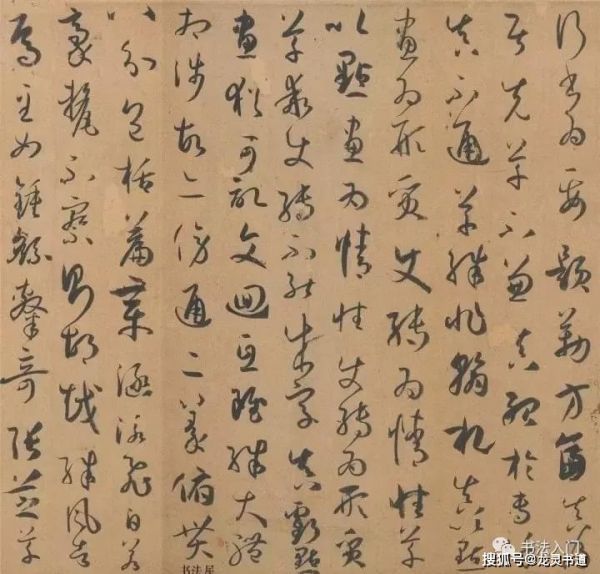 行書為要題勒方畐真乃
居先草不兼真殆於專
真不通草殊非翰札真以點
畫為形質使轉為情性草
以點畫為情性使轉為形質
草乖使轉不能成字真虧點
畫猶可記文迴互雖殊大體
相涉故亦傍通二篆俯貫
八分包括篇章涵泳飛白若
豪釐不察則胡越殊風者
焉至如鍾繇隸奇張芝草
书法入门
搜狐号@龙灵书道